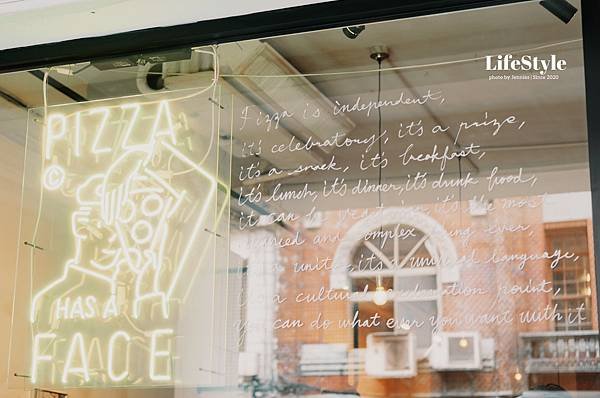 LifeStyle
photo by Jennies | Since 2020
PIZZA
©
HAS A
FACE
Pizza is independent,
it's celebratory, it's a prize,
it's a snack, it's breakfast,
it's lunch, it's dinner, it's drunk food,
it can be it's the most
and complex ever,
a it's a language,
a cultural point,
you can do what ever you want with it